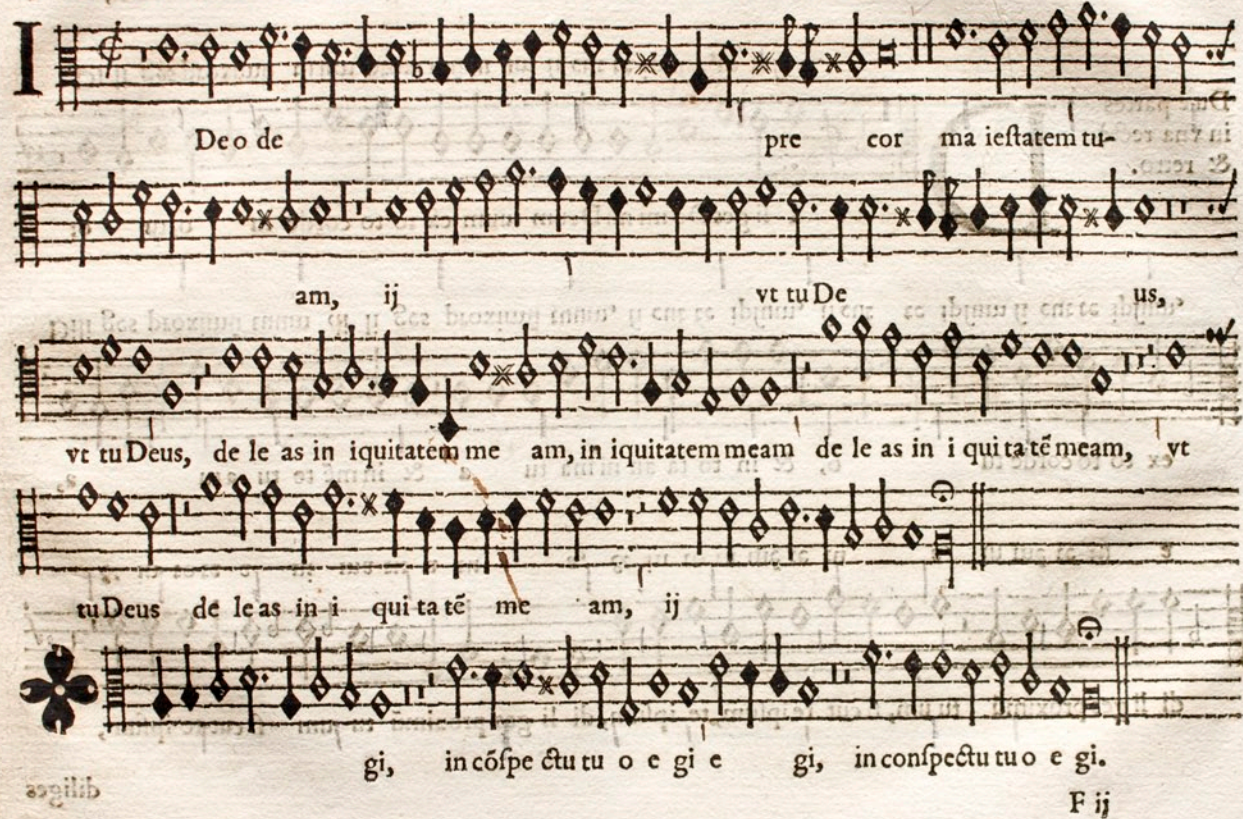 I
Deo de pre cor ma ieſtatem tu-
am, ij vt tu De us,
vt tu Deus, de le as in iquitatem me am, in iquitatem meam de le as in i qui ta tē meam, vt
tu Deus de le as in i qui ta tē me am, ij
gi, in cōſpe ctu tu o e gi e gi, in conſpectu tuo e gi.
F ij